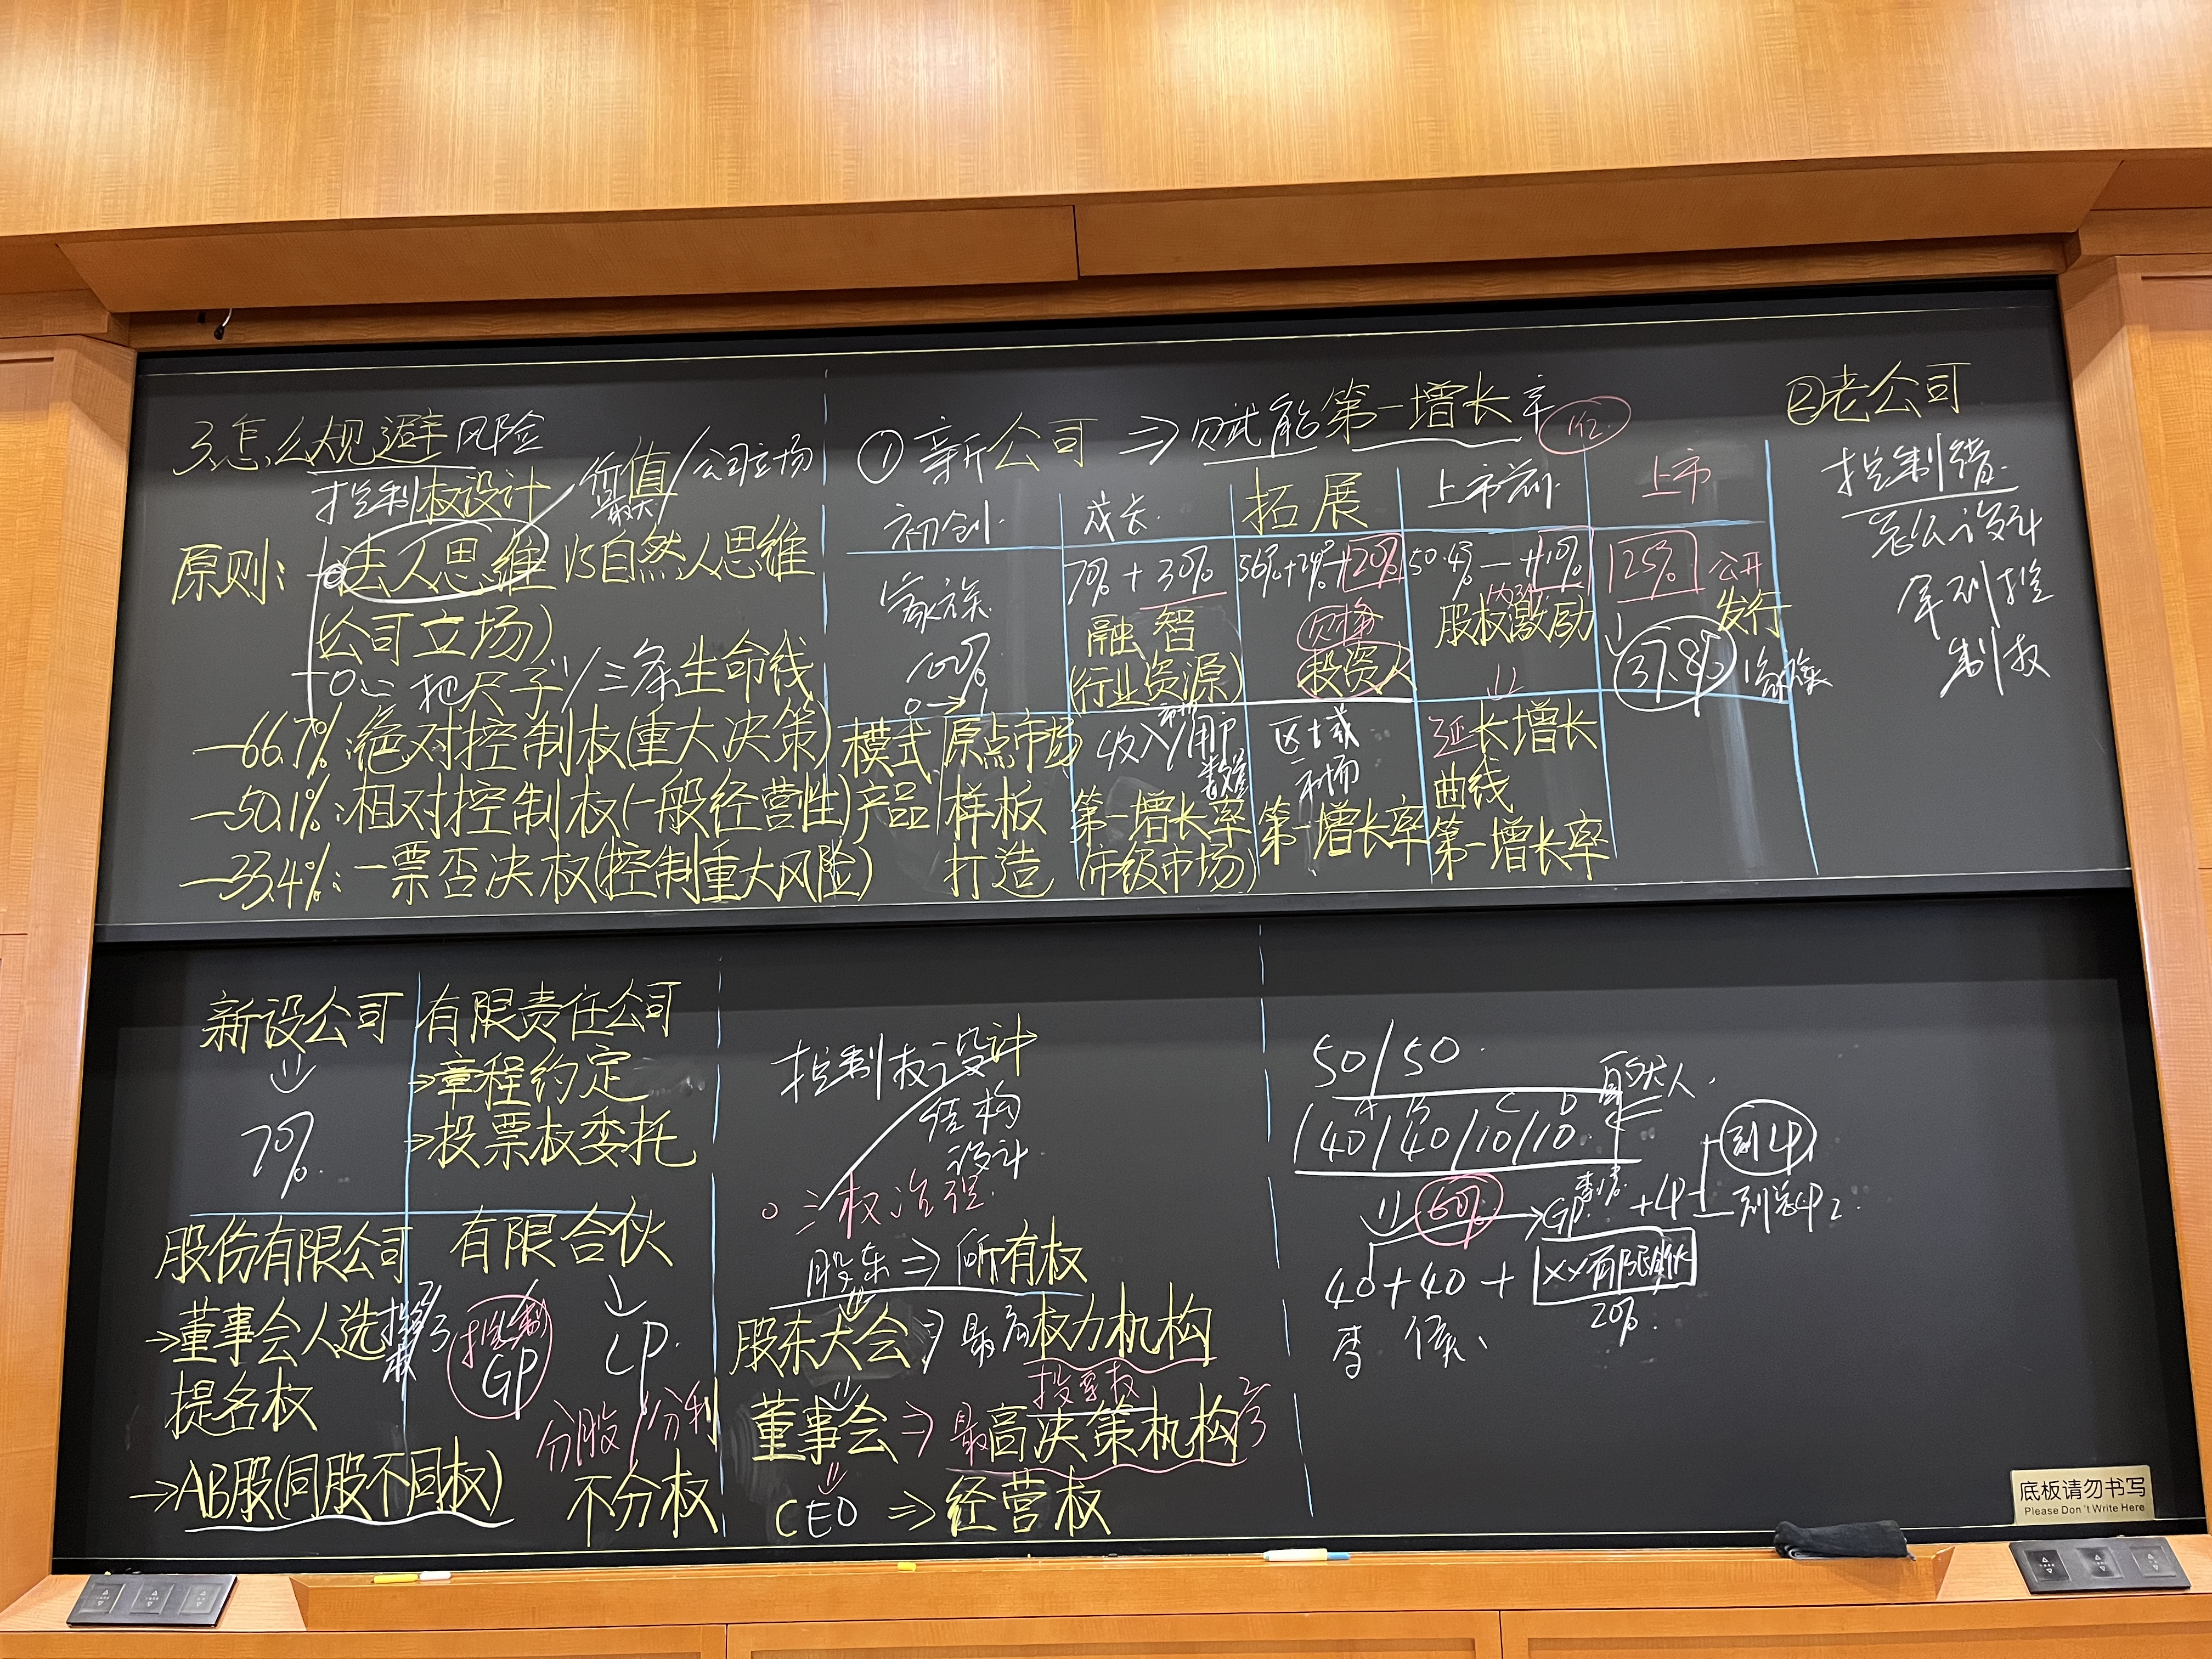 3.怎么规避风险
控制权设计
价值/公司立场
最大
原则:
法人思维 VS自然人思维
(公司立场)
一把尺子/三条生命线
—66.7%:绝对控制权(重大决策)
—50.1%:相对控制权(一般经营性)
—33.4%:一票否决权(控制重大风险)
①新公司 ⇒ 赋能第一增长率
初创
成长
拓展
上市前
上市
家族
100%
0→1
70%+30%
融智
(行业资源)
56%+24%+20%
投资人
50.4% — +10%
股权激励
25% 公开
发行
37.8% 家族
模式 原点市场
产品 样板
打造
收入/用户
数量
第一增长率
(市级市场)
区域
市场
第一增长率
延长增长
曲线
第一增长率
②老公司
控制错
怎么设计
拿到控
制权
新设公司
70%
有限责任公司
→章程约定
→投票权委托
股份有限公司
→董事会人选
提名权
控制权
2/3
→AB股(同股不同权)
有限合伙
控制
GP
LP
分股/分利
不分权
控制权设计
结构
设计
三权治理
股东⇒所有权
股东大会⇒最高权力机构
投票权
董事会⇒最高决策机构
CEO ⇒ 经营权
50/50
自然人
A B C D
40/40/10/10
60%→GP
+LP
刘LP
LP2
40+40+
XX有限合伙
20%
李
底板请勿书写
Please Don't Write Here